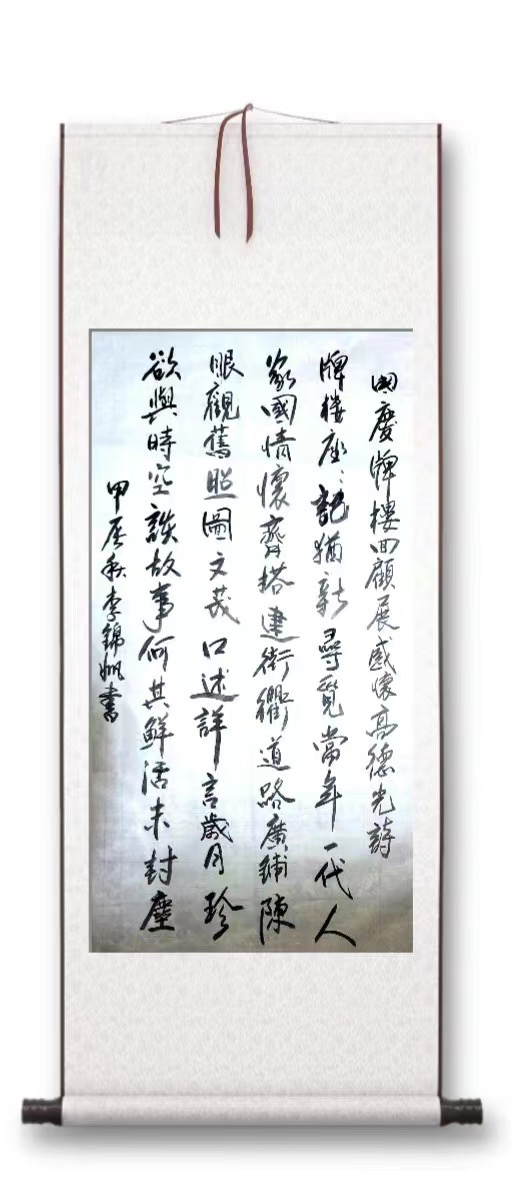 国慶牌樓回顧展感懷高德光詩
牌樓座々記猶新尋覓當年一代人
家國情懷齊搭建街衢道路廣鋪陳
眼觀舊照圖文茂口述詳言歲月珍
欲與時空談故事何其鮮活未封塵
甲辰秋李錦帆書